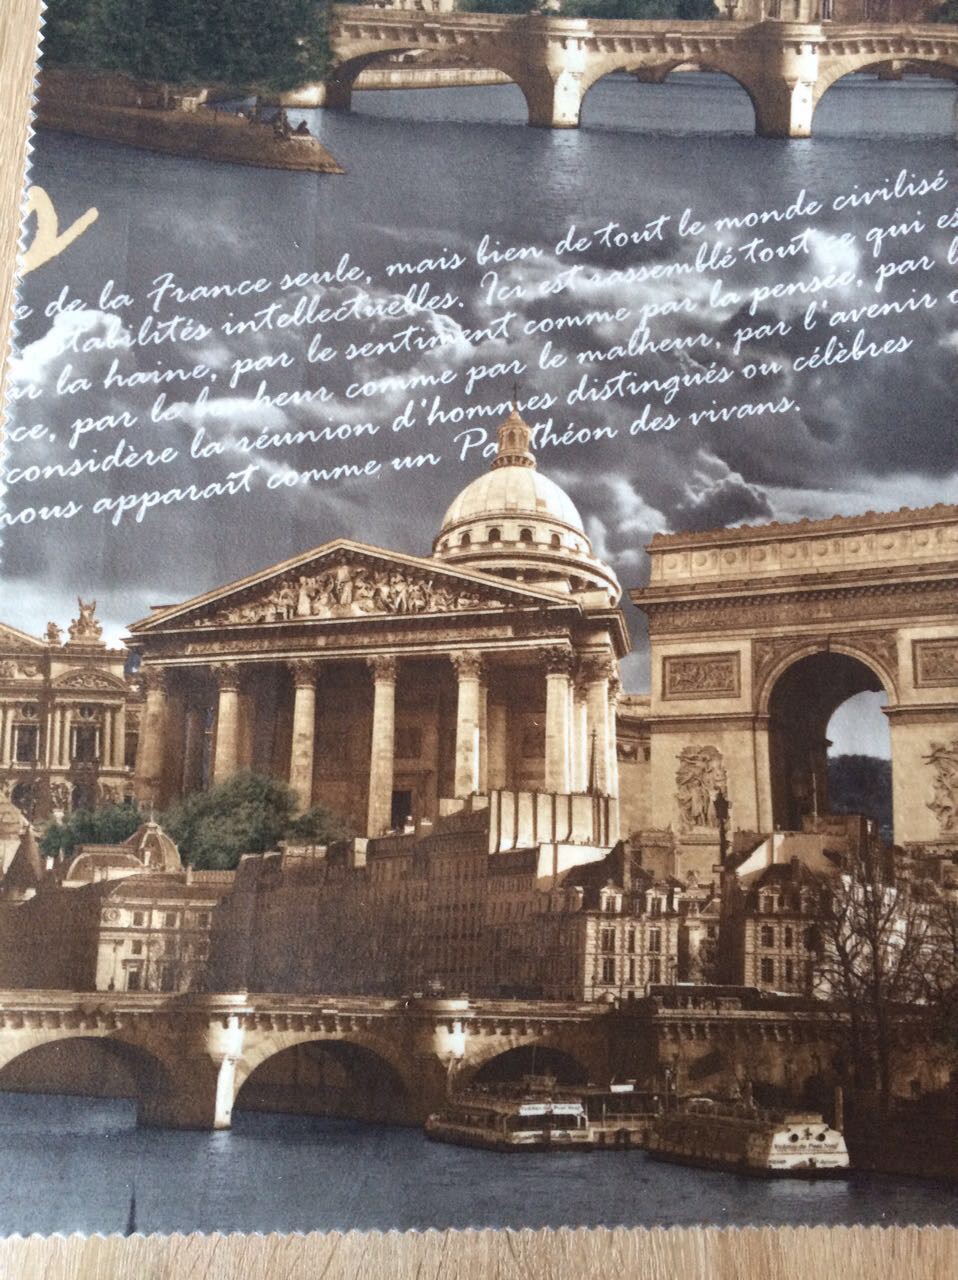 e de la France seule, mais bien de tout le monde civilisé
stabilités intellectuelles. Ici est rassemblé tout ce qui es
ar la haine, par le sentiment comme par la pensée, par l
ce, par le bonheur comme par le malheur, par l'avenir o
considère la réunion d'hommes distingués ou célèbres
nous apparaît comme un Panthéon des vivans.
Vedettes du Pont Neuf
Vedettes du Pont Neuf